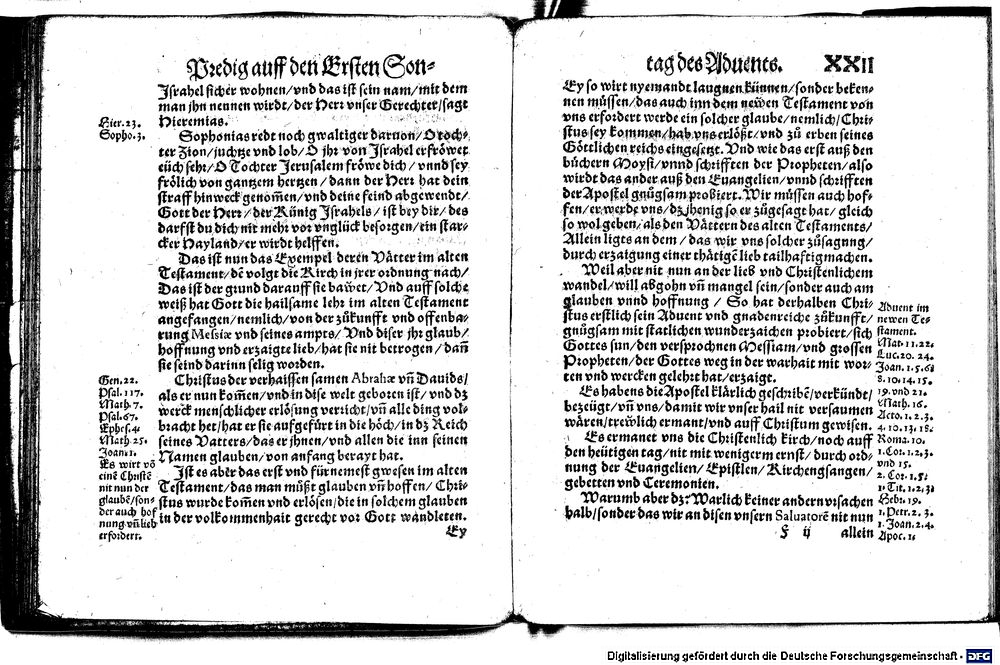 Predig auff den Ersten Son-
Israhel sicher wohnen/ vnd das ist sein nam/ mit dem
man jhn nennen wirdt/ der Herr vnser Gerechter/ sagt
Hieremias.
Sophonias redt noch gwaltiger daruon/ O toch-
ter Zion/ juchtze vnd lob/ O jhr von Israhel erfröwet
eüch sehr/ O Tochter Jerusalem fröwe dich/ vnnd sey
frölich von gantzem hertzen/ dann der Herr hat dein
straff hinweck genom̃en/ vnd deine feind abgewendt/
Gott der Herr/ der Künig Israhels/ ist bey dir/ des
darfst du dich nit mehr vor vnglück besorgen/ ein star-
cker Hayland/ er wirdt helffen.
Das ist nun das Exempel deren Vätter im alten
Testament/ dẽ volgt die Kirch in jrer ordnung nach/
Das ist der grund darauff sie bawet/ Vnd auff solche
weiß hat Gott die hailsame lehr im alten Testament
angefangen/ nemlich/ von der zůkunfft vnd offenba-
rung Messiæ vnd seines ampts/ Vnd diser jhr glaub/
hoffnung vnd erzaigte lieb/ hat sie nit betrogen/ dañ
sie seind darinn selig worden.
Christus der verhaissen samen Abrahæ vñ Dauids/
als er nun kom̃en/ vnd in dise welt geboren ist/ vnd dz
werck menschlicher erlösung verricht/ vñ alle ding vol-
bracht het/ hat er sie aufgefürt in die höch/ in dz Reich
seines Vatters/ das er jhnen/ vnd allen die inn seinen
Namen glauben/ von anfang berayt hat.
Ist es aber das erst vnd fürnemest gwesen im alten
Testament/ das man müßt glauben vñ hoffen/ Chri-
stus wurde kom̃en vnd erlösen/ die in solchem glauben
in der volkommenhait gerecht vor Gott wandleten.
Ey
Hier.23.
Sopho.3.
Gen.22.
Psal.117.
Math.7.
Psal.67.
Ephes.4.
Math 25.
Joan.1.
Es wirt võ
einẽ Christẽ
nit nun der
glaubẽ/ son-
der auch hof
nung vñ lieb
erfordert.
tag des Aduents. XXII
Ey so wirt nyemandt laugnen künnen/ sonder beken-
nen müssen/ das auch inn dem newen Testament von
vns erfordert werde ein solcher glaube/ nemlich/ Chri-
stus sey kommen/ hab vns erlößt/ vnd zů erben seines
Göttlichen reichs eingesetzt. Vnd wie das erst auß den
büchern Moysi/ vnnd schrifften der Propheten/ also
wirdt das ander auß den Euangelien/ vnnd schrifften
der Apostel gnůgsam probiert. Wir müssen auch hof-
fen/ er werde vns/ dz jhenig so er zůgesagt hat/ gleich
so wol geben/ als den Vättern des alten Testaments/
Allein ligts an dem/ das wir vns solcher zůsagung/
durch erzaigung einer thätigẽ lieb tailhaftig machen.
Weil aber nit nun an der lieb vnd Christenlichem
wandel/ will abgohn vñ mangel sein/ sonder auch am
glauben vnnd hoffnung/ So hat derhalben Chri-
stus erstlich sein Aduent vnd gnadenreiche zůkunfft/
gnůgsam mit statlichen wunderzaichen probiert/ sich
Gottes sun/ den versprochnen Messiam/ vnd grossen
Propheten/ der Gottes weg in der warhait mit wor-
ten vnd wercken gelehrt hat/ erzaigt.
Es habens die Apostel klärlich geschribẽ/ verkündt/
bezeügt/ vñ vns/ damit wir vnser hail nit versaumen
wären/ trewlich ermant/ vnd auff Christum gewisen.
Es ermanet vns die Christenlich kirch/ noch auff
den heütigen tag/ nit mit wenigerm ernst/ durch ord-
nung der Euangelien/ Epistlen/ Kirchengsangen/
gebetten vnd Ceremonien.
Warumb aber dz? Warlich keiner andern vrsachen
halb/ sonder das wir an disen vnsern Saluatorẽ nit nun
F ij allein
Aduent im
newen Te-
stament.
Mat.11.22.
Luc.20. 24.
Joan.1.5.6.
8.10.14.15.
19.vnd 21.
Math.16.
Acto.1.2.3.
4.10.13.18.
Roma.10.
1.Cor.1.2.3.
vnd 15.
2. Cor.1.5.
1.Tit.1.2.3.
Hebr.19.
1.Petr.2.3.
1.Joan.2.4.
Apoc.1.
Digitalisierung gefördert durch die Deutsche Forschungsgemeinschaft - DFG